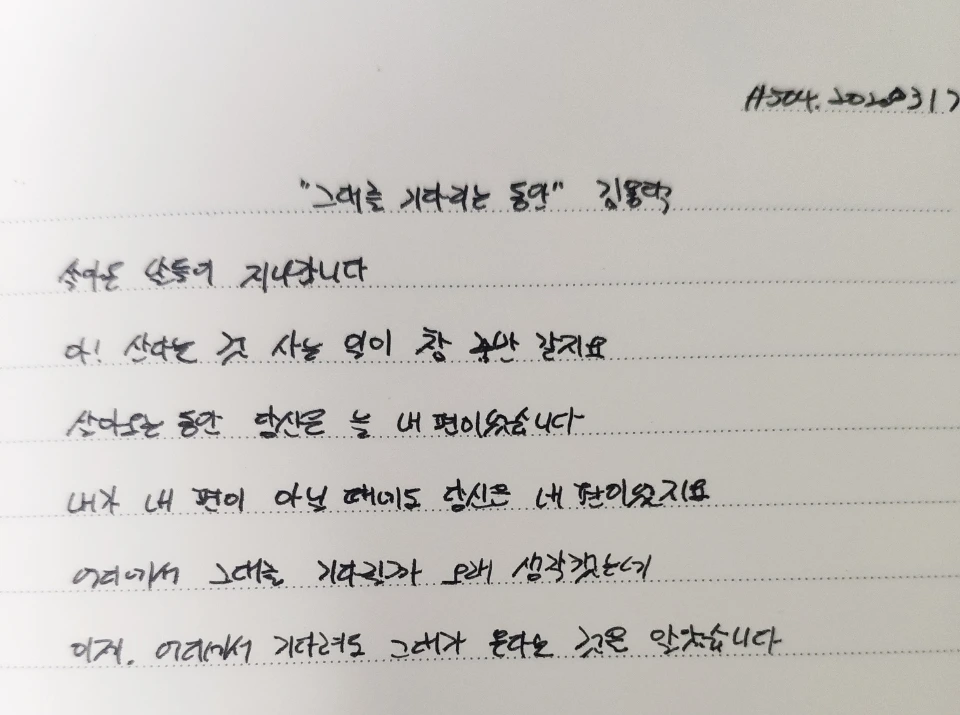 A504. 20200317
"그대를 기다리는 동안" 김용택
살아온 날들이 지나갑니다
아! 산다는 것 사는 일이 참 꿈만 같지요
살아오는 동안 당신은 늘 내 편이었습니다
내가 내 편이 아닐 때에도 당신은 내 편이었지요
어디에서 그대를 기다릴까 오래 생각했는데
이제, 어디에서 기다려도 그대가 온다는 것을 알았습니다